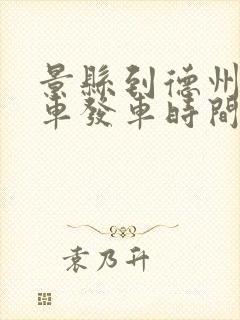 景縣到德州
車發車時間
袁乃升